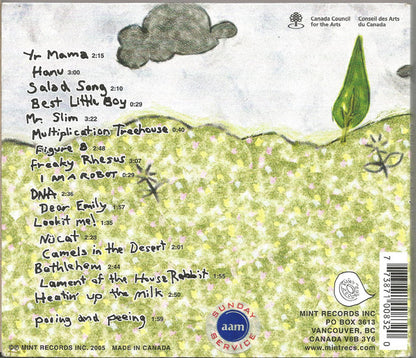 Canada Council
for the Arts
Conseil des Arts
du Canada
Yr Mama 2:15
Hanu 3:00
Salad Song 2:10
Best Little Boy 0:29
Mr. Slim 3:22
Multiplication Treehouse 0:40
Figure 8 2:48
Freaky Rhesus 3:07
I AM A ROBOT 0:29
DNA 2:36
Dear Emily 1:57
Lookit me! 1:35
Nücat 2:28
Camels in the Desert 2:01
Bathlehem 2:44
Lament of the House Rabbit 1:55
Heatin' up the milk 2:50
pooing and peeing 1:59
SUNDAY
aam
SERVICE
MINT RECORDS INC
PO BOX 3613
VANCOUVER, BC
CANADA V6B 3Y6
www.mintrecs.com
© MINT RECORDS INC. 2005 MADE IN CANADA